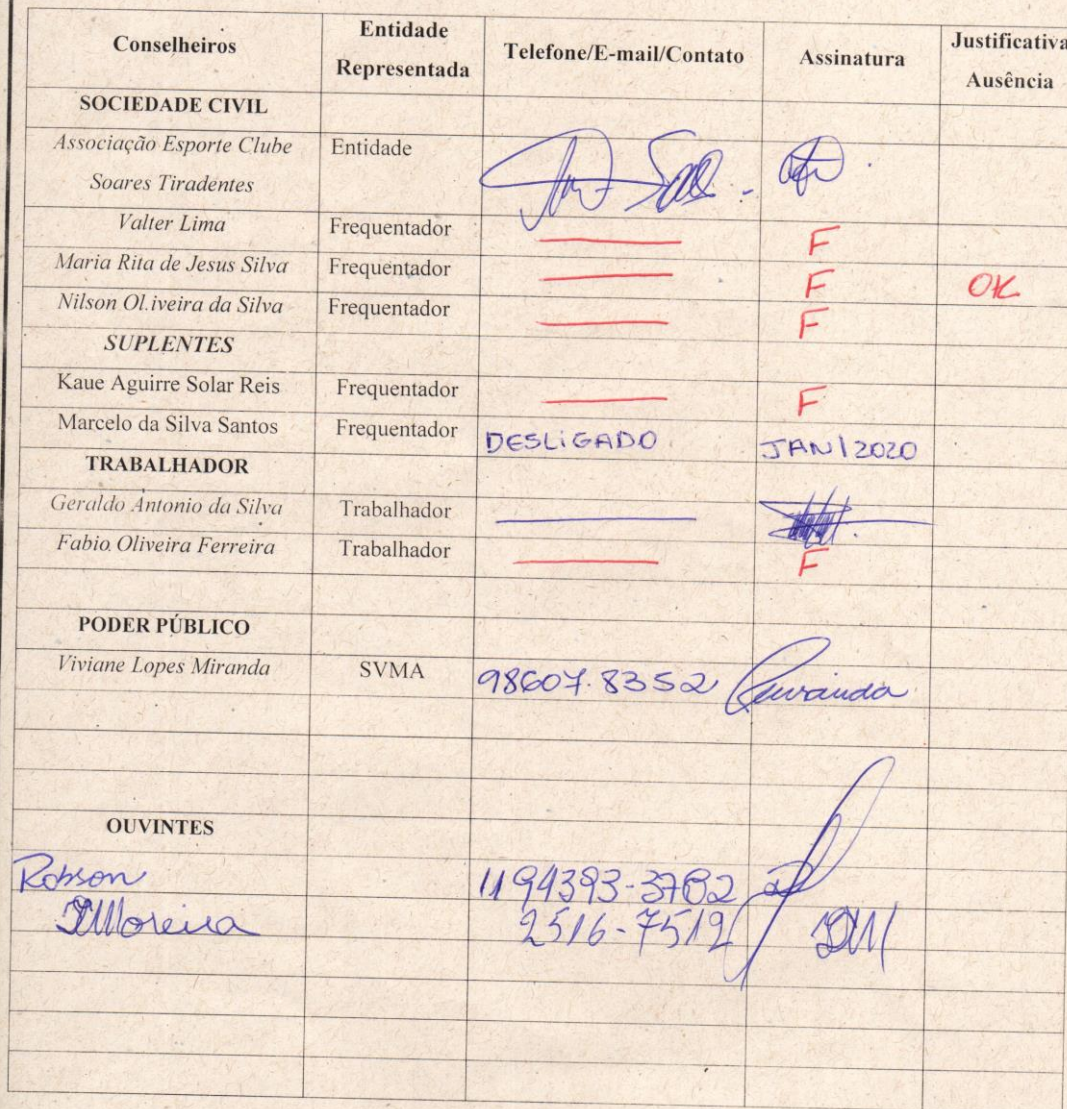 Conselheiros Entidade Representada Telefone/E-mail/Contato Assinatura Justificativa Ausência
SOCIEDADE CIVIL
Associação Esporte Clube Entidade
Soares Tiradentes
Valter Lima Frequentador F
Maria Rita de Jesus Silva Frequentador F OK
Nilson Ol.iveira da Silva Frequentador F
SUPLENTES
Kaue Aguirre Solar Reis Frequentador F
Marcelo da Silva Santos Frequentador DESLIGADO JAN/2020
TRABALHADOR
Geraldo Antonio da Silva Trabalhador
Fabio Oliveira Ferreira Trabalhador F
PODER PÚBLICO
Viviane Lopes Miranda SVMA 98607.8352
OUVINTES
Robson 1194393-3782
Moreira 2516-7512